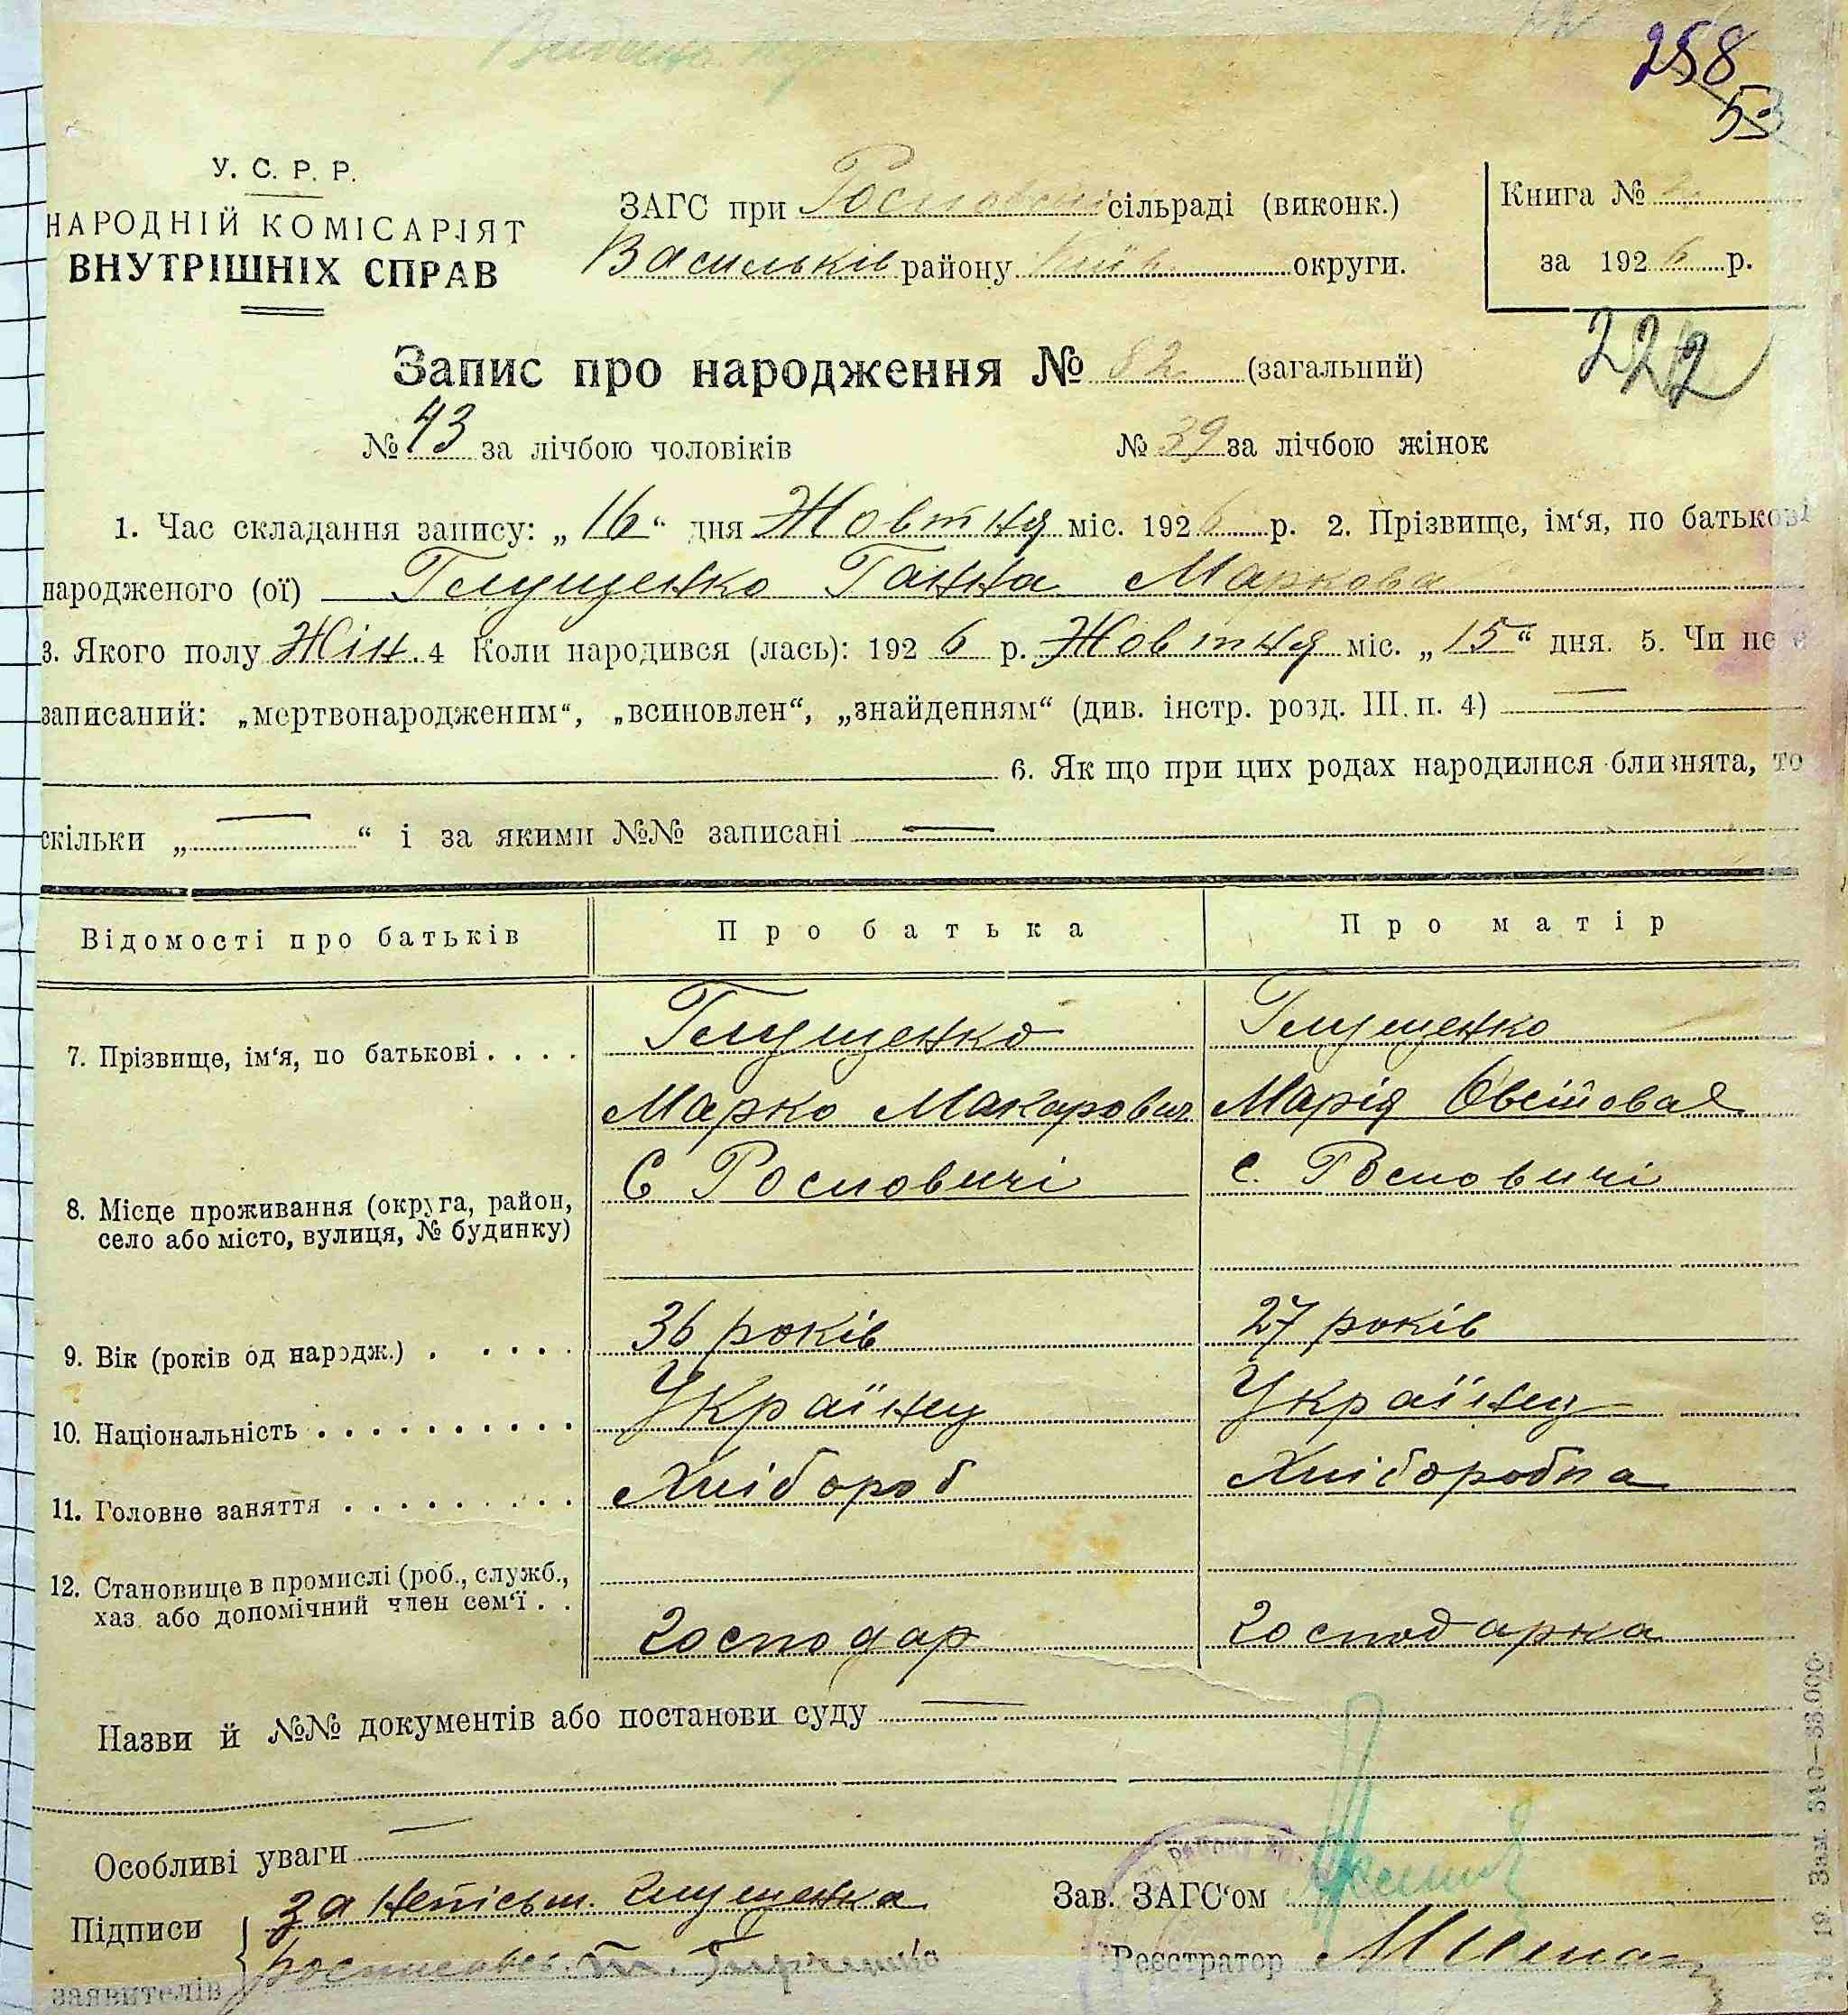 258
53
У. С. Р. Р.
НАРОДНІЙ КОМІСАРІЯТ
ВНУТРІШНІХ СПРАВ
ЗАГС при Росновській сільраді (виконк.)
Васильків району Київ округи.
Книга №
за 1926 р.
222
Запис про народження № 82 (загальний)
№ 43 за лічбою чоловіків № 39 за лічбою жінок
1. Час складання запису: „16“ дня Жовтня міс. 1926 р. 2. Прізвище, ім‘я, по батькові
народженого (ої) Глущенко Ганна Маркова
3. Якого полу Жін. 4 Коли народився (лась): 1926 р. Жовтня міс. „15“ дня. 5. Чи не є
записаний: „мертвонародженим“, „всиновлен“, „знайденням“ (див. інстр. розд. III. п. 4) —
6. Як що при цих родах народилися близнята, то
скільки „—“ і за якими №№ записані —
Відомості про батьків Про батька Про матір
7. Прізвище, ім‘я, по батькові . . . . Глущенко Глущенко
Марко Макарович Марія
8. Місце проживання (округа, район, С Росновичі с. Росновичі
село або місто, вулиця, № будинку)
9. Вік (років од народж.) . . . . . 36 років 27 років
10. Національність . . . . . . . . . . Українц Українц
11. Головне заняття . . . . . . . . . Хлібороб Хліборобка
12. Становище в промислі (роб., служб.,
хаз. або допомічний член сем‘ї . . Господар Господарка
Назви й №№ документів або постанови суду —
Особливі уваги —
Підписи за непісьм. Глущенка
заявителів росписавсь
Зав. ЗАГС‘ом
Реєстратор
19. Зам. 310—33.000.